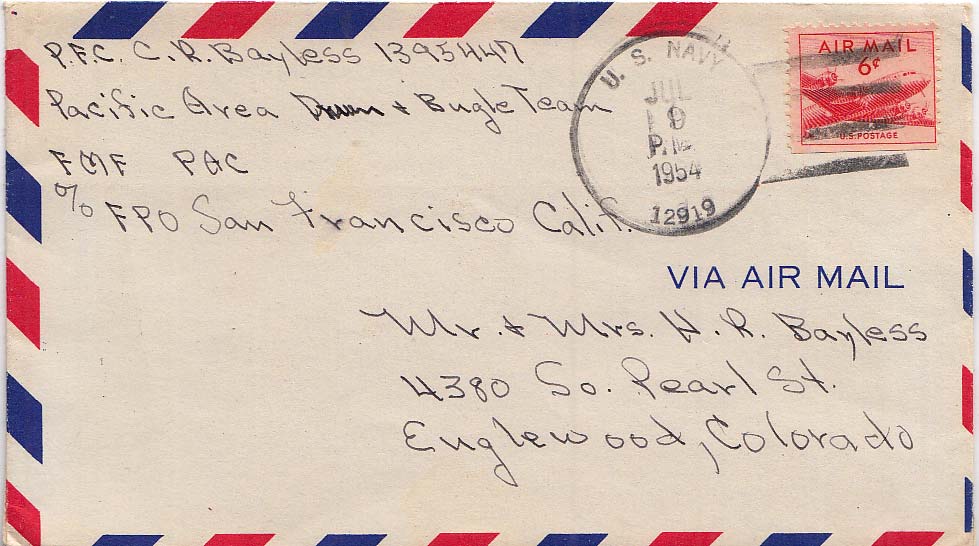 P.F.C. C. R. Bayless 1395447
Pacific Area Drum & Bugle Team
FMF PAC
c/o FPO San Francisco Calif.
U. S. NAVY
JUL
19
P.M.
1954
12919
AIR MAIL
6¢
U.S. POSTAGE
VIA AIR MAIL
Mr. & Mrs. H. R. Bayless
4380 So. Pearl St.
Englewood, Colorado